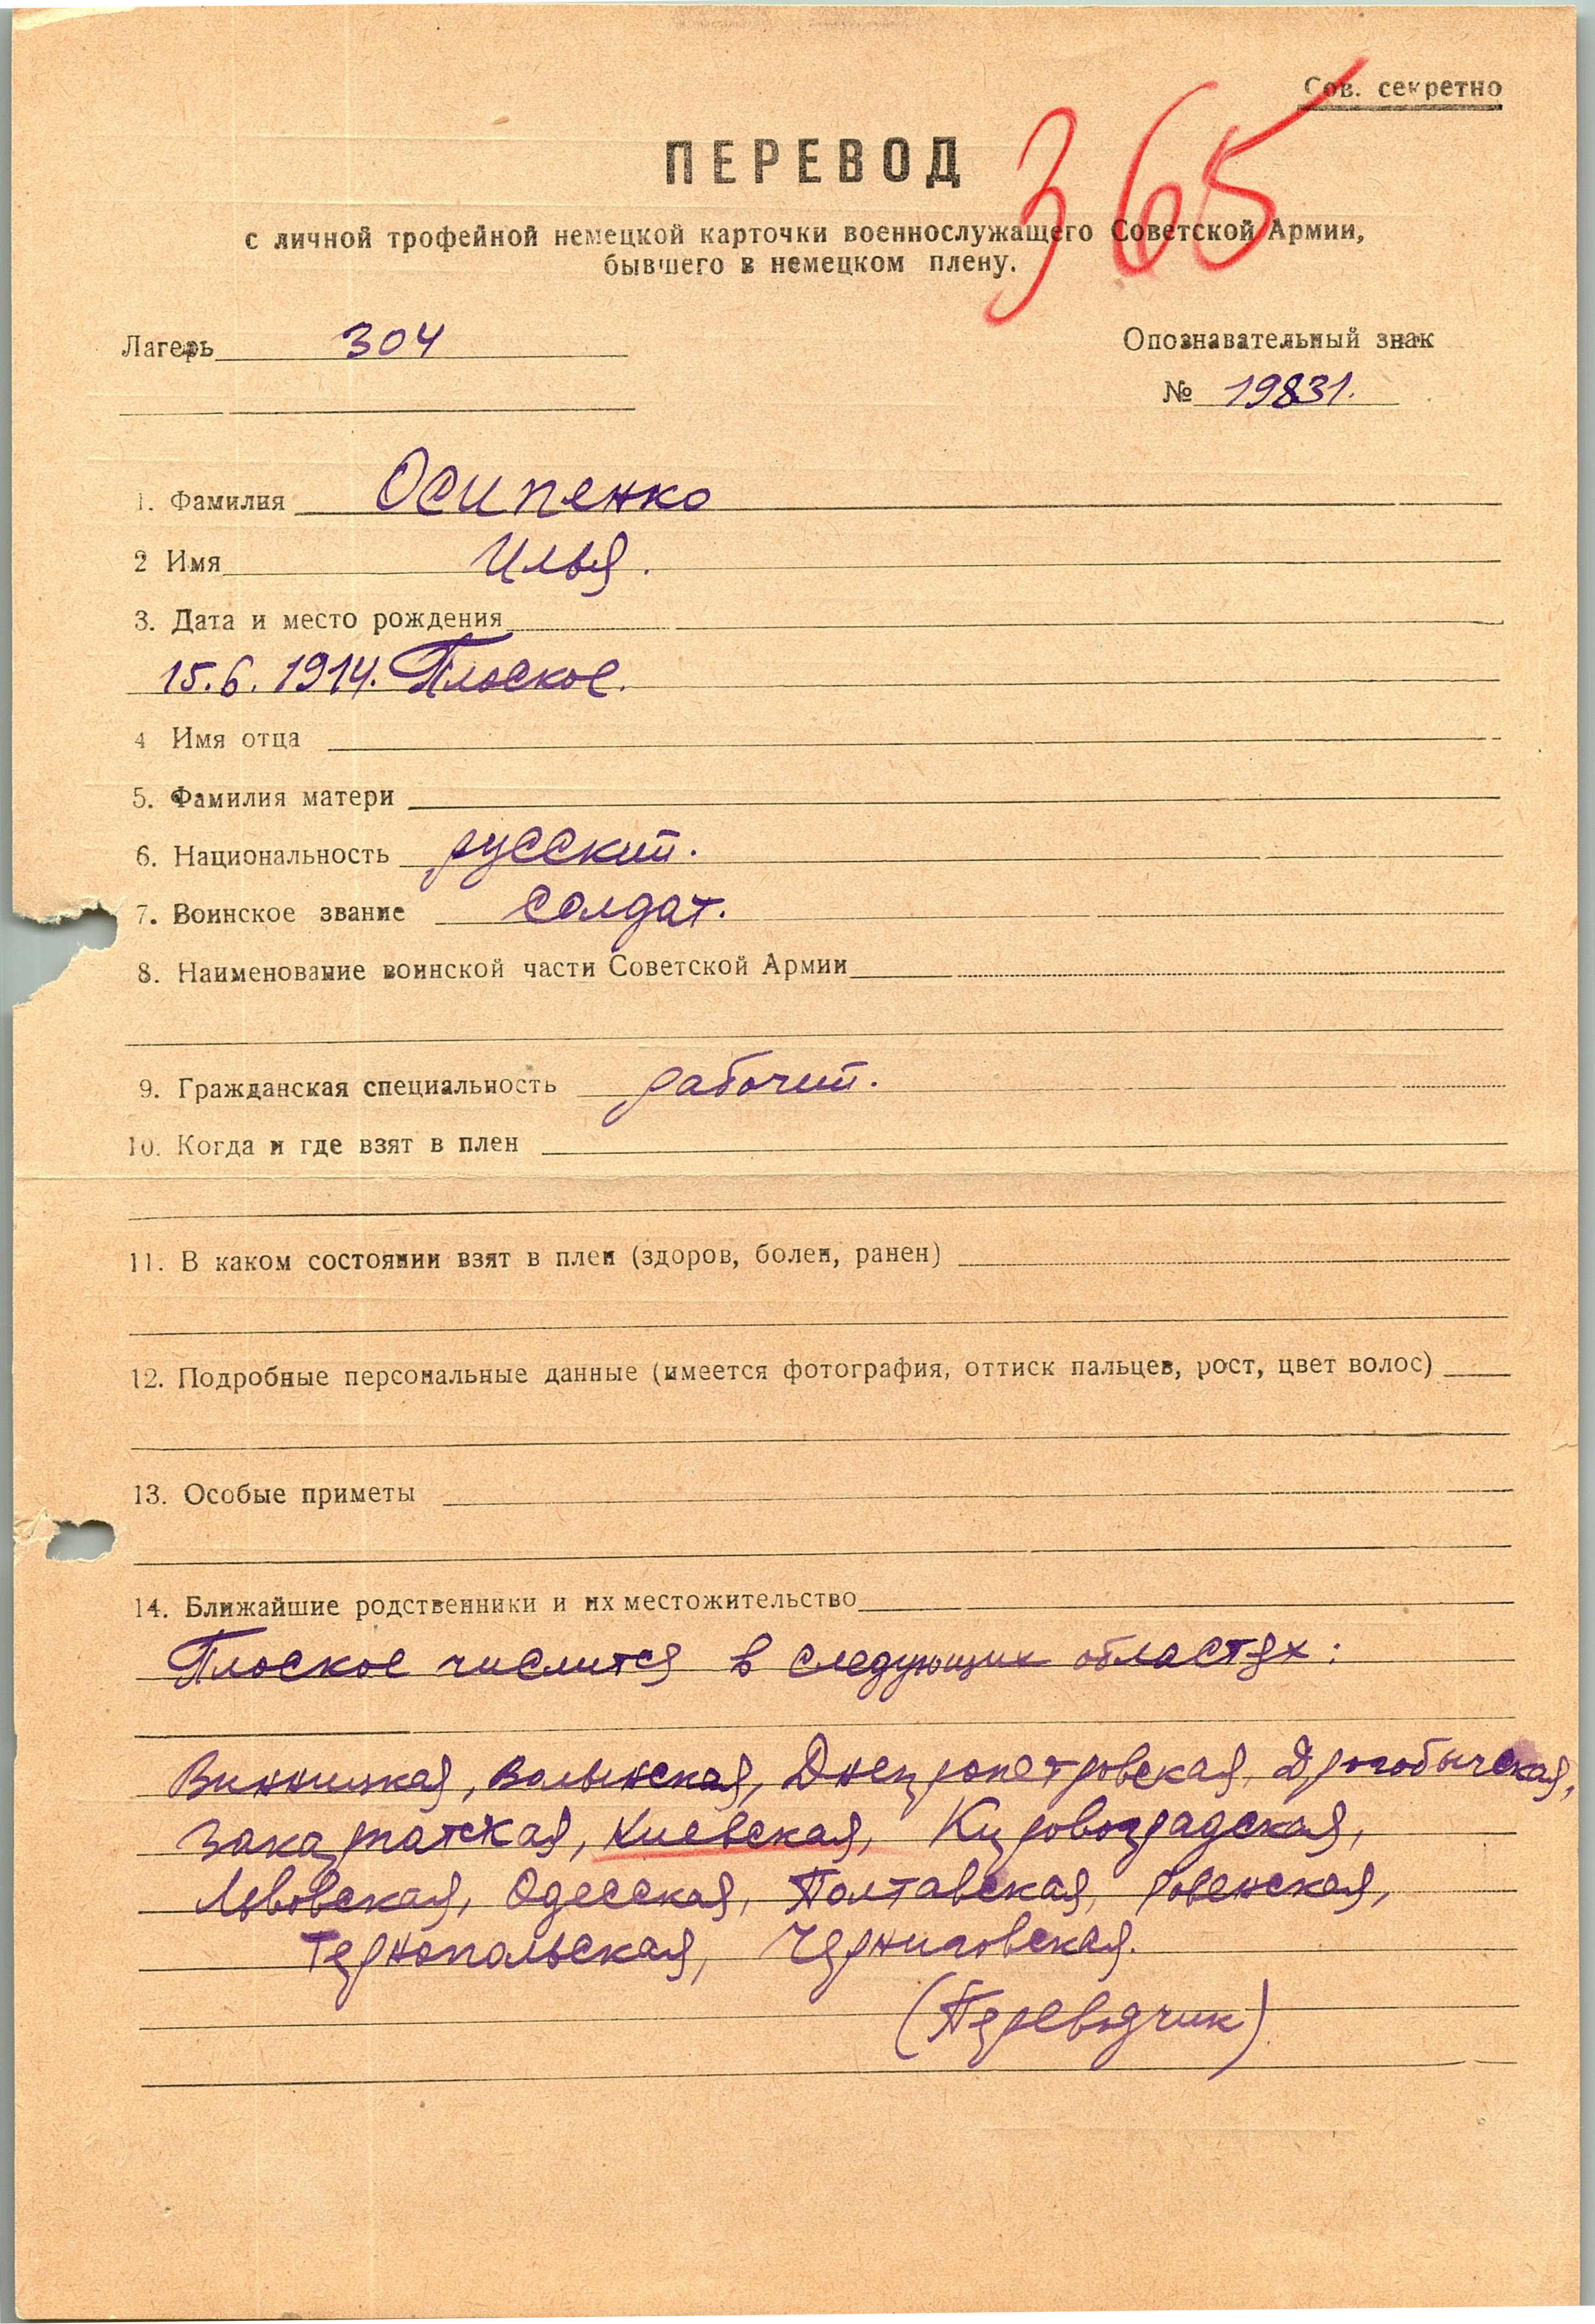 Сов. секретно
365
ПЕРЕВОД
с личной трофейной немецкой карточки военнослужащего Советской Армии,
бывшего в немецком плену.
Лагерь 304
Опознавательный знак
№ 19831.
1. Фамилия Осипенко
2 Имя Илья.
3. Дата и место рождения
15.6.1914. Плоское.
4 Имя отца
5. Фамилия матери
6. Национальность русский.
7. Воинское звание солдат.
8. Наименование воинской части Советской Армии
9. Гражданская специальность рабочий.
10. Когда и где взят в плен
11. В каком состоянии взят в плен (здоров, болен, ранен)
12. Подробные персональные данные (имеется фотография, оттиск пальцев, рост, цвет волос)
13. Особые приметы
14. Ближайшие родственники и их местожительство
Плоское числится в следующих областях:
Винницкая, Волынская, Днепропетровская, Дрогобычская,
Закарпатская, Киевская, Кировоградская,
Львовская, Одесская, Полтавская, Ровенская,
Тернопольская, Черниговская.
(Переводчик)